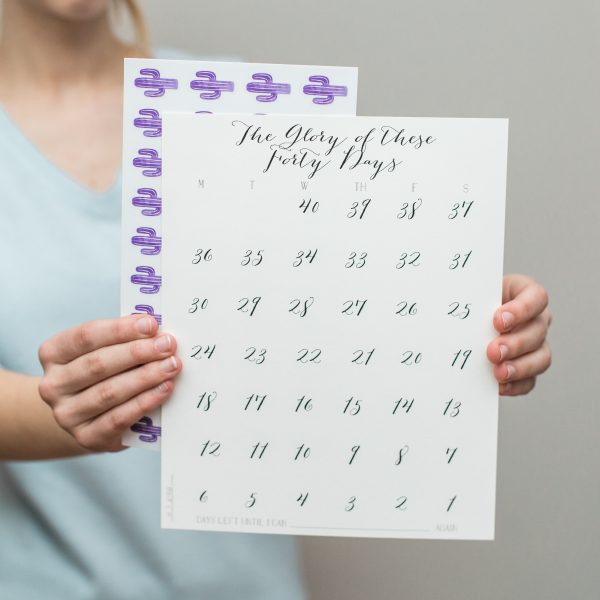 The Glory of these
Forty Days
M T W TH F S
40 39 38 37
36 35 34 33 32 31
30 29 28 27 26 25
24 23 22 21 20 19
18 17 16 15 14 13
12 11 10 9 8 7
6 5 4 3 2 1
DAYS LEFT UNTIL I CAN ____________________ AGAIN